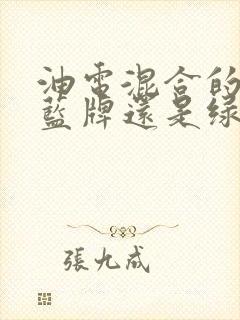 油電混合的
藍牌還是綠
張九成